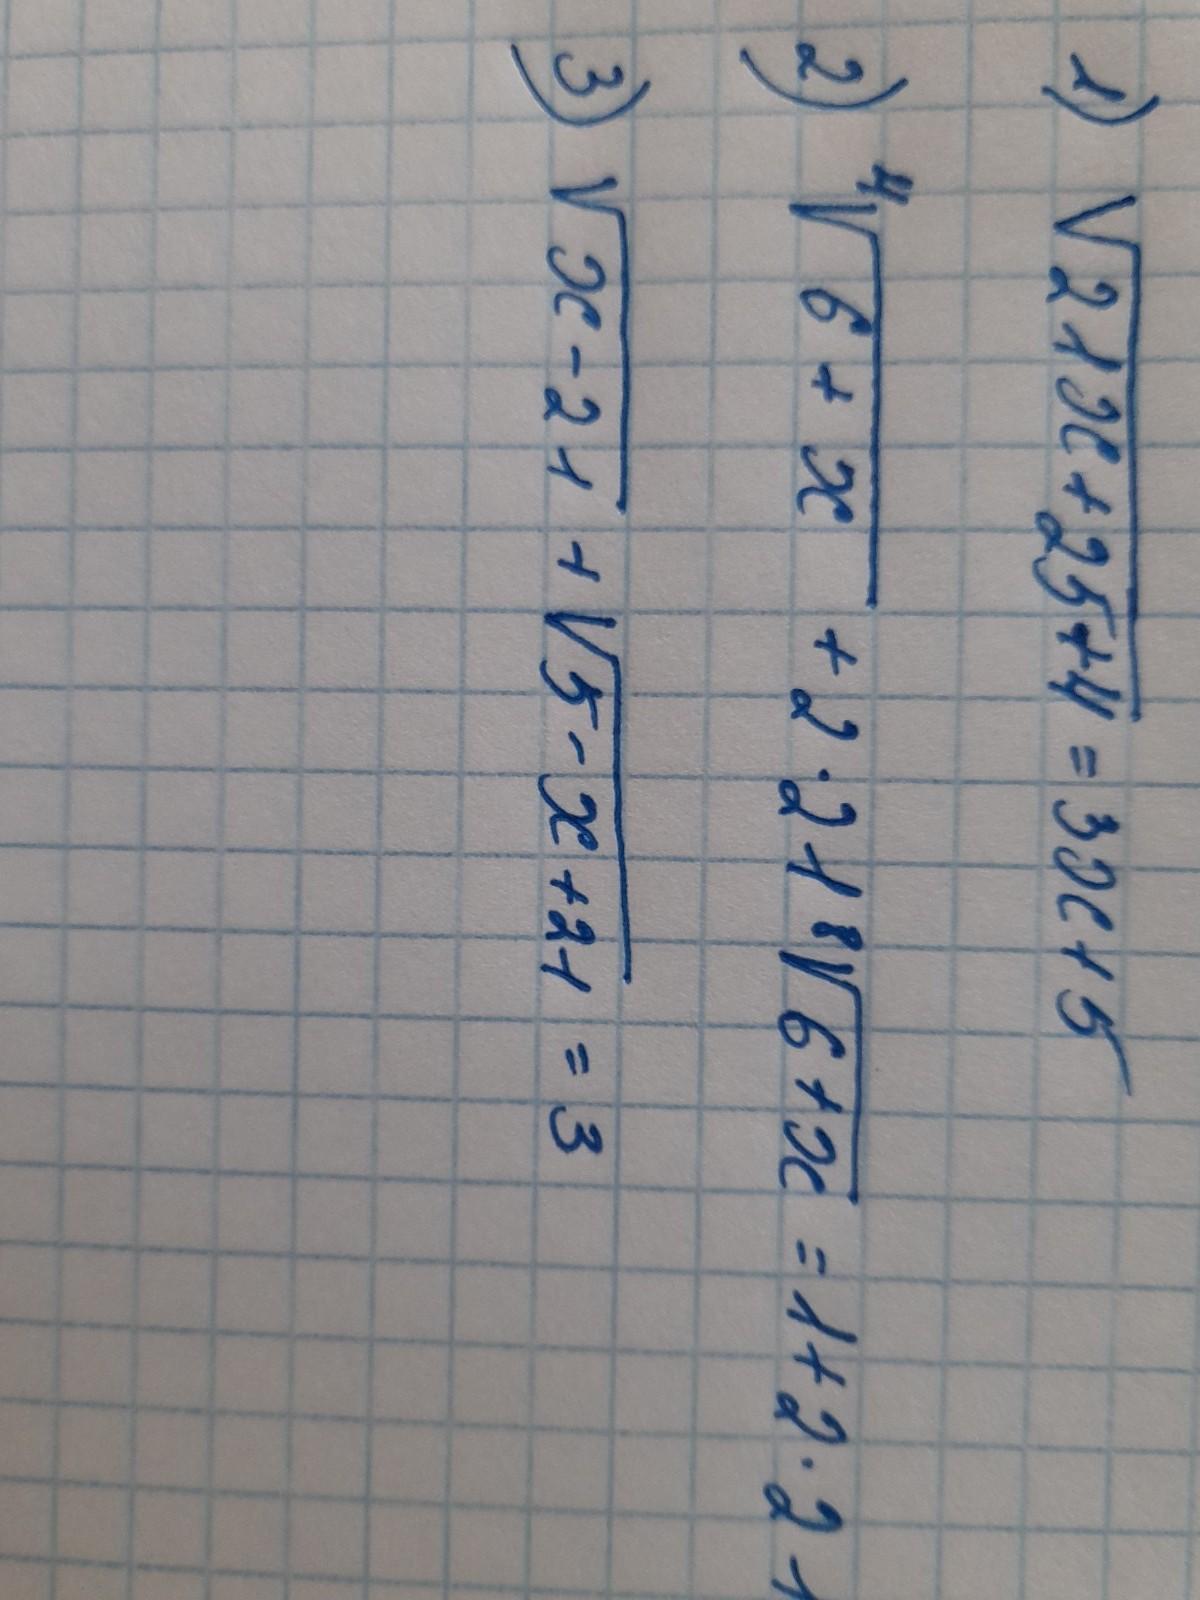 1) √21x+25+4 = 3x+5
2) ⁴√6+x + 2·21 ⁸√6+x = 1+2·21
3) √x-21 + √5-x+21 = 3